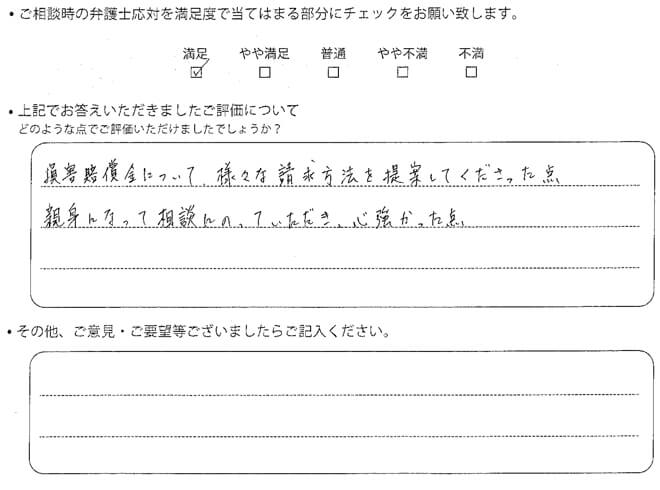 ・ご相談時の弁護士応対を満足度で当てはまる部分にチェックをお願い致します。
満足 やや満足 普通 やや不満 不満
☑ □ □ □ □
・上記でお答えいただきましたご評価について
どのような点でご評価いただけましたでしょうか?
損害賠償金について、様々な請求方法を提案してくださった点
親身になって相談にのっていただき、心強かった点
・その他、ご意見・ご要望等ございましたらご記入ください。